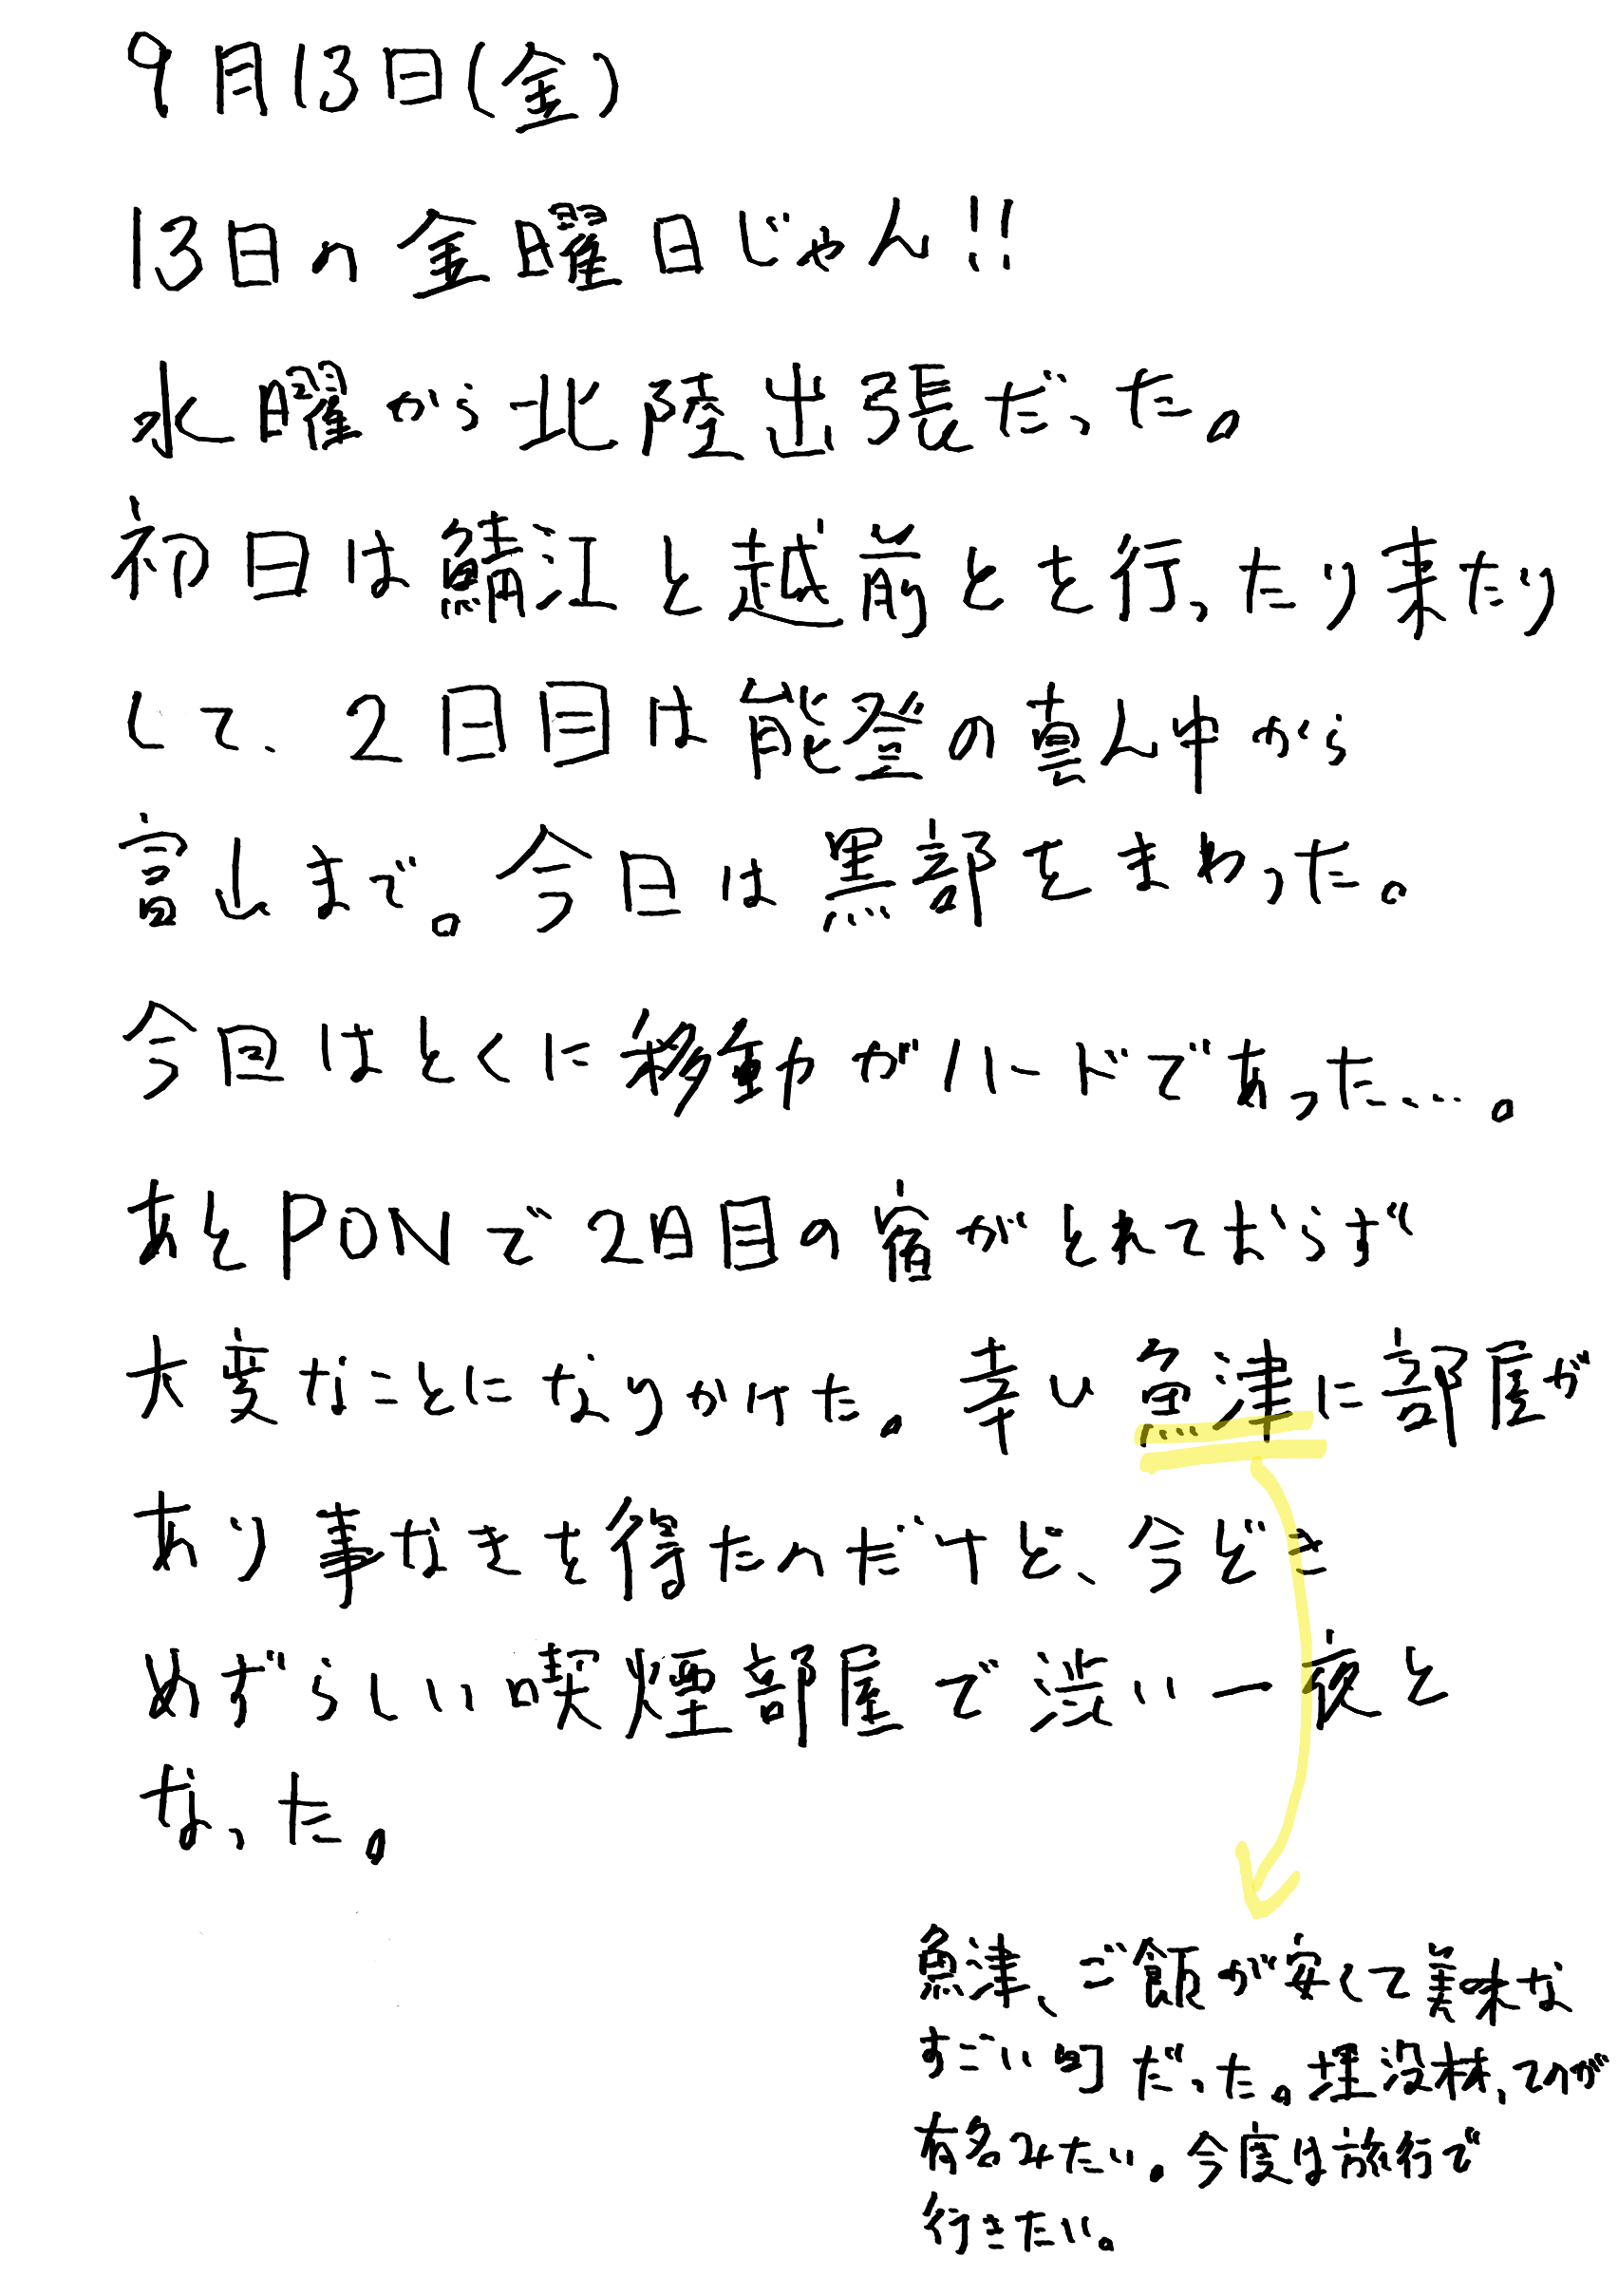 9月13日(金)
13日の金曜日じゃん!!
水曜から北陸出張だった。
初日は鯖江と越前とを行ったり来たり
して、2日目は能登の真ん中から
富山まで。今日は黒部をまわった。
今回はとくに移動がハードであった…。
あとPONで2日目の宿がとれておらず
大変なことになりかけた。幸い魚津に部屋が
あり事なきを得たのだけど、今どき
めずらしい喫煙部屋で渋い一夜と
なった。
魚津、ご飯が安くて美味な
すごい町だった。埋没林ってのが
有名みたい。今度は旅行で
行きたい。